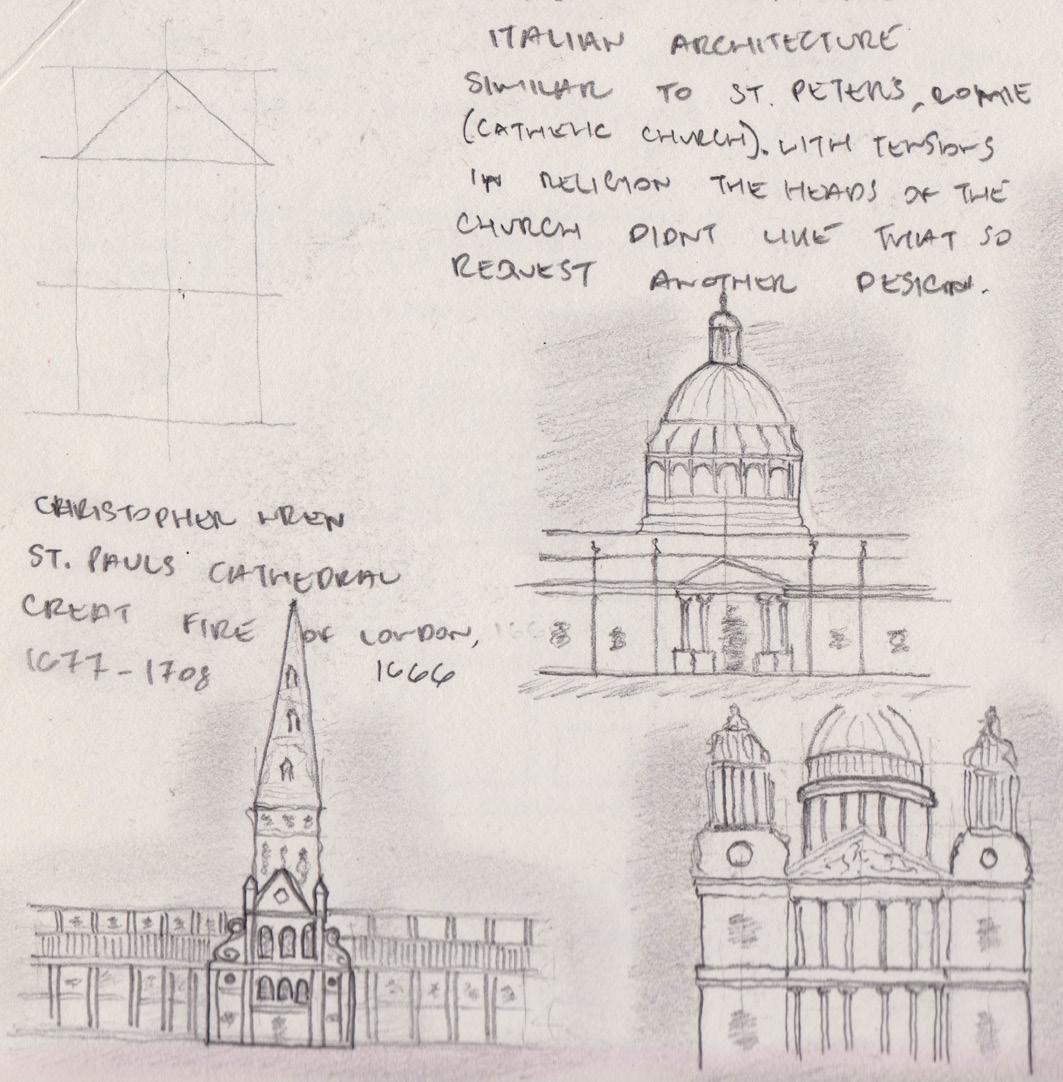 ITALIAN ARCHITECTURE
SIMILAR TO ST. PETER'S, ROME
(CATHELIC CHURCH). WITH TENSIONS
IN RELIGION THE HEADS OF THE
CHURCH DIDNT LIKE THAT SO
REQUEST ANOTHER DESIGN.
CHRISTOPHER WREN
ST. PAULS CATHEDRAL
GREAT FIRE OF LONDON, 166
1677-1708 1666